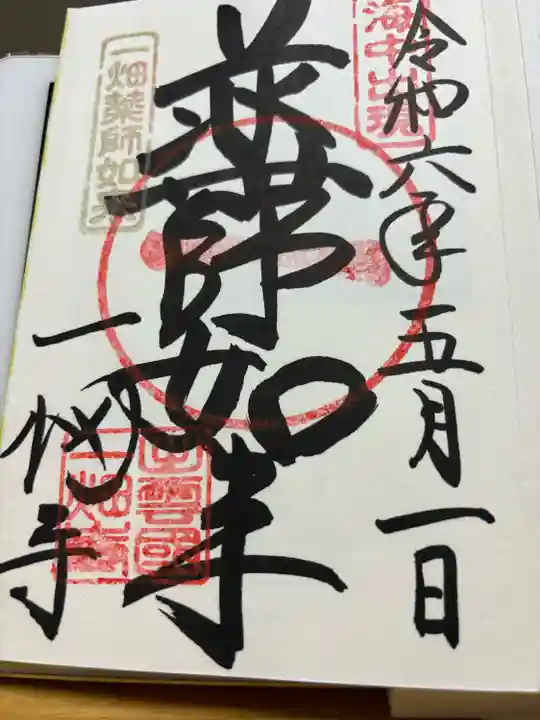 海中出現
令和六年五月一日
薬師如来
一畑薬師如来
一畑寺
出雲國
一畑寺